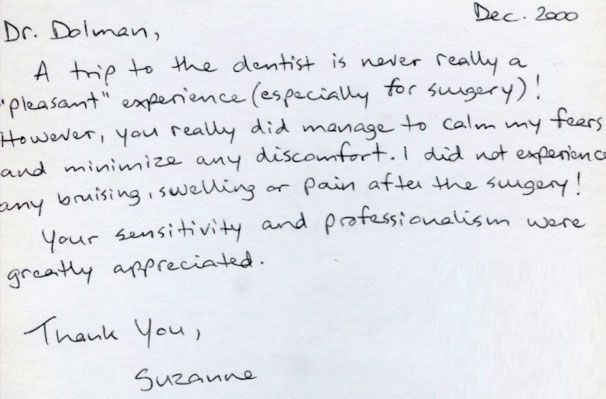 Dec. 2000
Dr. Dolman,
A trip to the dentist is never really a
"pleasant" experience (especially for surgery)!
However, you really did manage to calm my fears
and minimize any discomfort. I did not experienc
any bruising, swelling or pain after the surgery!
Your sensitivity and professionalism were
greatly appreciated.
Thank You,
Suzanne